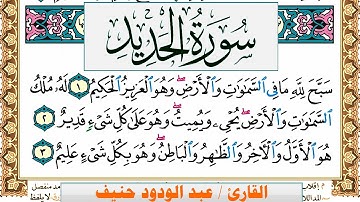 سورة الحديد
سَبَّحَ لِلَّهِ مَا فِي السَّمَاوَاتِ وَالْأَرْضِ وَهُوَ الْعَزِيزُ الْحَكِيمُ ١ لَهُ مُلْكُ
السَّمَاوَاتِ وَالْأَرْضِ يُحْيِي وَيُمِيتُ وَهُوَ عَلَى كُلِّ شَيْءٍ قَدِيرٌ ٢
هُوَ الْأَوَّلُ وَالْآخِرُ وَالظَّاهِرُ وَالْبَاطِنُ وَهُوَ بِكُلِّ شَيْءٍ عَلِيمٌ ٣
القارئ / عبد الودود حنيف